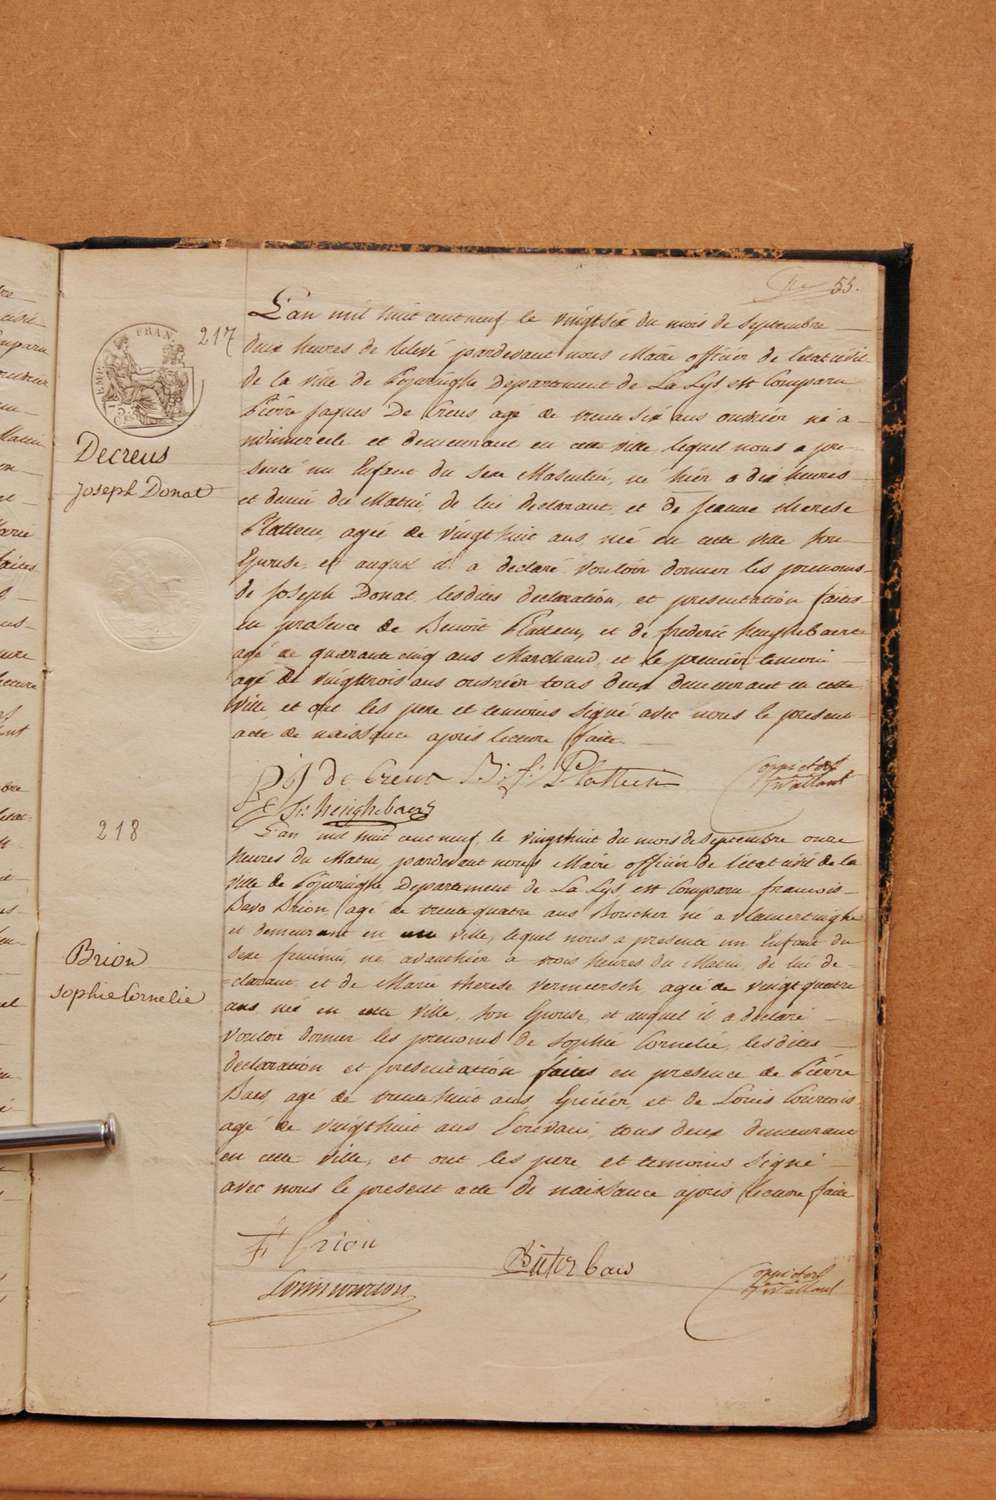 55.
217
EMP FRAN
75 C
Decreus
Joseph Donat
L'an mil huit cent neuf, le vingtsix du mois de Septembre
deux heures de relevé pardevant nous Maire officier de l'etat civil
de la ville de Poperinghe Departement de La Lys est Comparu
Pierre Jaques De Creus agé de trente six ans ouvrier né a
et demeurant en cette ville, lequel nous a pre-
senté un Enfant du sexe Masculin, né hier a dix heures
et demie du Matin, de lui declarant, et de jeanne therese
Platteeu, agée de vingt huit ans, née en cette ville son
Epouse, et auquel il a declaré vouloir donner les prenoms
de Joseph Donat, lesdites declaration, et presentation faites
en presence de Benoit Platteeu, et de frederic henghebaert
agé de quarante cinq ans Marchand, et le premier temoin
agé de vingttrois ans ouvrier tous deux demeurant en cette
ville et ont les pere et temoins signé avec nous le present
acte de naissance après lecture faite.
P J De Creus B: f: Platteeu
218
Brion
Sophie Cornelie
L'an mil huit cent neuf, le vingthuit du mois de Septembre onze
heures du Matin, pardevant nous Maire officier de l'etat civil de la
ville de Poperinghe Departement de La Lys est Comparu francois
Bavo Brion, agé de trente quatre ans Boucher né a vlamertinghe
et demeurant en ville, lequel nous a presenté un Enfant du
sexe feminin, né avanthier a trois heures du Matin, de lui de-
-clarant et de Marie therese vermeersch agée de vingt quatre
ans, née en cette ville, son Epouse, et auquel il a declaré
vouloir donner les prenoms de Sophie Cornelie, lesdites
declaration et presentation faites en presence de Pierre
Baes, agé de trente huit ans Epicier, et de Louis Courtois
agé de vingthuit ans Ecrivain, tous deux demeurant
en cette ville, et ont les pere et temoins signé
avec nous le present acte de naissance après lecture faite
F Brion